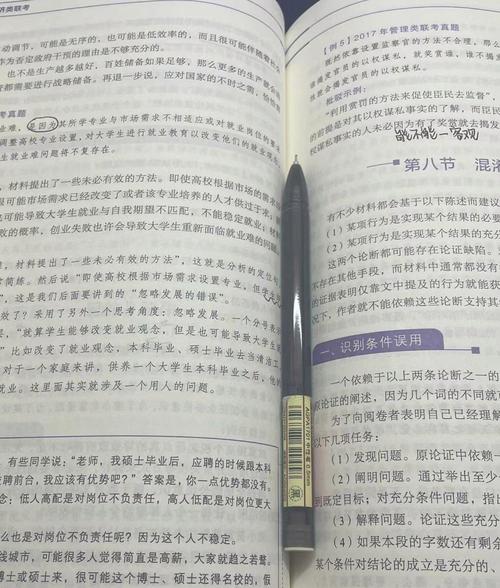 济类联考
动调节,可能是无序的,也可能是低效率的,而且很可能伴随着
为否定政府干预的理由是不够充分的。
也不是生产越多越好,百姓储备如果足够,那么更多的生产
都需要进行战略储备。再退一步说,应对国家的不时之需,恰恰
考真题
业难,是因为其所学专业与市场需求不相适应或对就业岗位的要
调整高校专业设置,对大学生进行就业教育以改变他们的就业
生就业难问题将不复存在。
,材料提出了一些未必有效的方法。即使高校根据市场的需求
很可能市场需求已经改变了或者该专业培养的人才供过于求,
可能导致大学生就业与自我期望不匹配,不能稳定就业;
败的概率,创业失败也许会导致大学生重新面临就业难的问题。
,材料提出了一些未必有效的方法”,这就是分析的定位
简练。然后说“即使高校根据市场需求设置专业,但
”,这是我们后面要讲到的“忽略发展的错误”。
效了?采用了另外一个思考角度:忽略发展。一个分号表
,“就算学生能够改变就业观念,但是也可能导致大学
”比如改变了就业观,本科毕业、硕士毕业去当清洁工
对于一个家庭来讲,供养一个大学生本科毕业之后,
业。这里面其实就涉及一个用人的问题。
,有些同学说:“老师,我硕士毕业后,应聘的时候跟本科
聘前台,我应该有优势吧?”答案是,你一点优势都没有。
念:低人高配是对岗位不负责任,高人低配是对岗位更大
么也是对岗位不负责任?因为这个人不稳定。
线城市,可能很多人觉得简直是高薪,大家就趋之若鹜。
博士或硕士来,很可能这个博士、硕士还得名校的。假
【例5】2017年管理类联考真题
既然依靠设置监察官的方法不合理,那么
揭发官员的以权谋私,就奖赏谁,谁不揭发
官员以权谋私。
批驳示例:
“利用赏罚的方法来促使臣民去监督”,
的提出是对其以权谋私事实的了解,而臣民
权谋私事实的人未必因为有了奖赏就去揭发
能不能—客观
第八节 混淆
有不少材料都会基于以下陈述而建议
(1)某项行为是实现某个结果的必要
(2)某项行为是实现某个结果的充分
这两个论断都可能存在论证缺陷。
不存在其他手段,而材料中通常都没有
的证据表明仅靠文中提及的行为就能获
下,作者就不能依赖这些论断支持其
一、识别条件误用
一个依赖于以上两条论断之一的
原论证的阐述,因为几个词的不同就可
为了向阅卷者表明自己已经理解
以下几项任务:
(1)发现问题。原论证中依赖
(2)阐明问题。通过举出至少
到既定目标;对充分条件问题,指出
(3)解释问题。论证这些充分
(4)如果本段的字数还有剩
某个条件对结论的成立是充分的,
0.5mm
黑